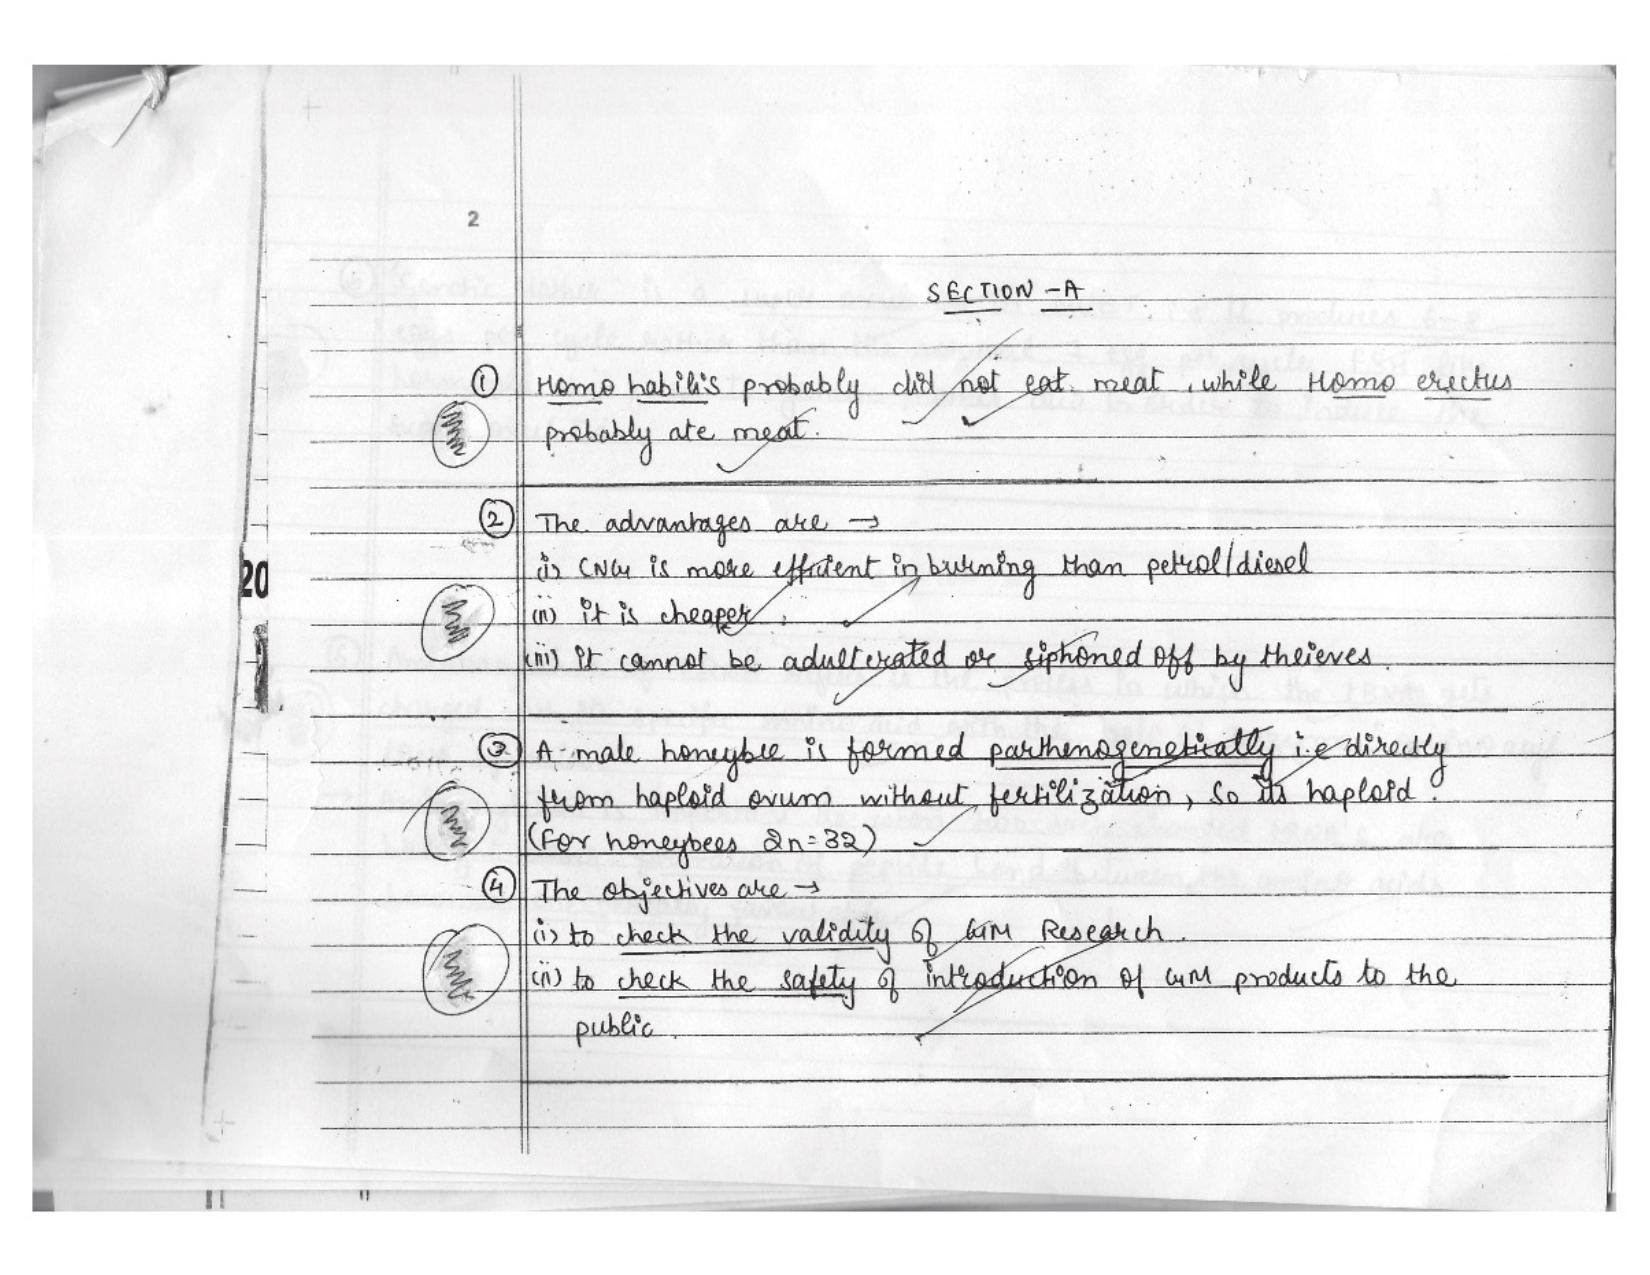 2
SECTION-A
① Homo habilis probably did not eat meat, while Homo erectus
probably ate meat.
② The advantages are →
(i) CNG is more efficient in burning than petrol/diesel
(ii) it is cheaper.
20
(iii) it cannot be adulterated or siphoned off by theieves.
③ A male honeybee is formed parthenogenetically i.e directly
from haploid ovum without fertilization, so its haploid.
(For honeybees 2n=32)
④ The objectives are →
(i) to check the validity of GM Research.
(ii) to check the safety of introduction of GM products to the
public.